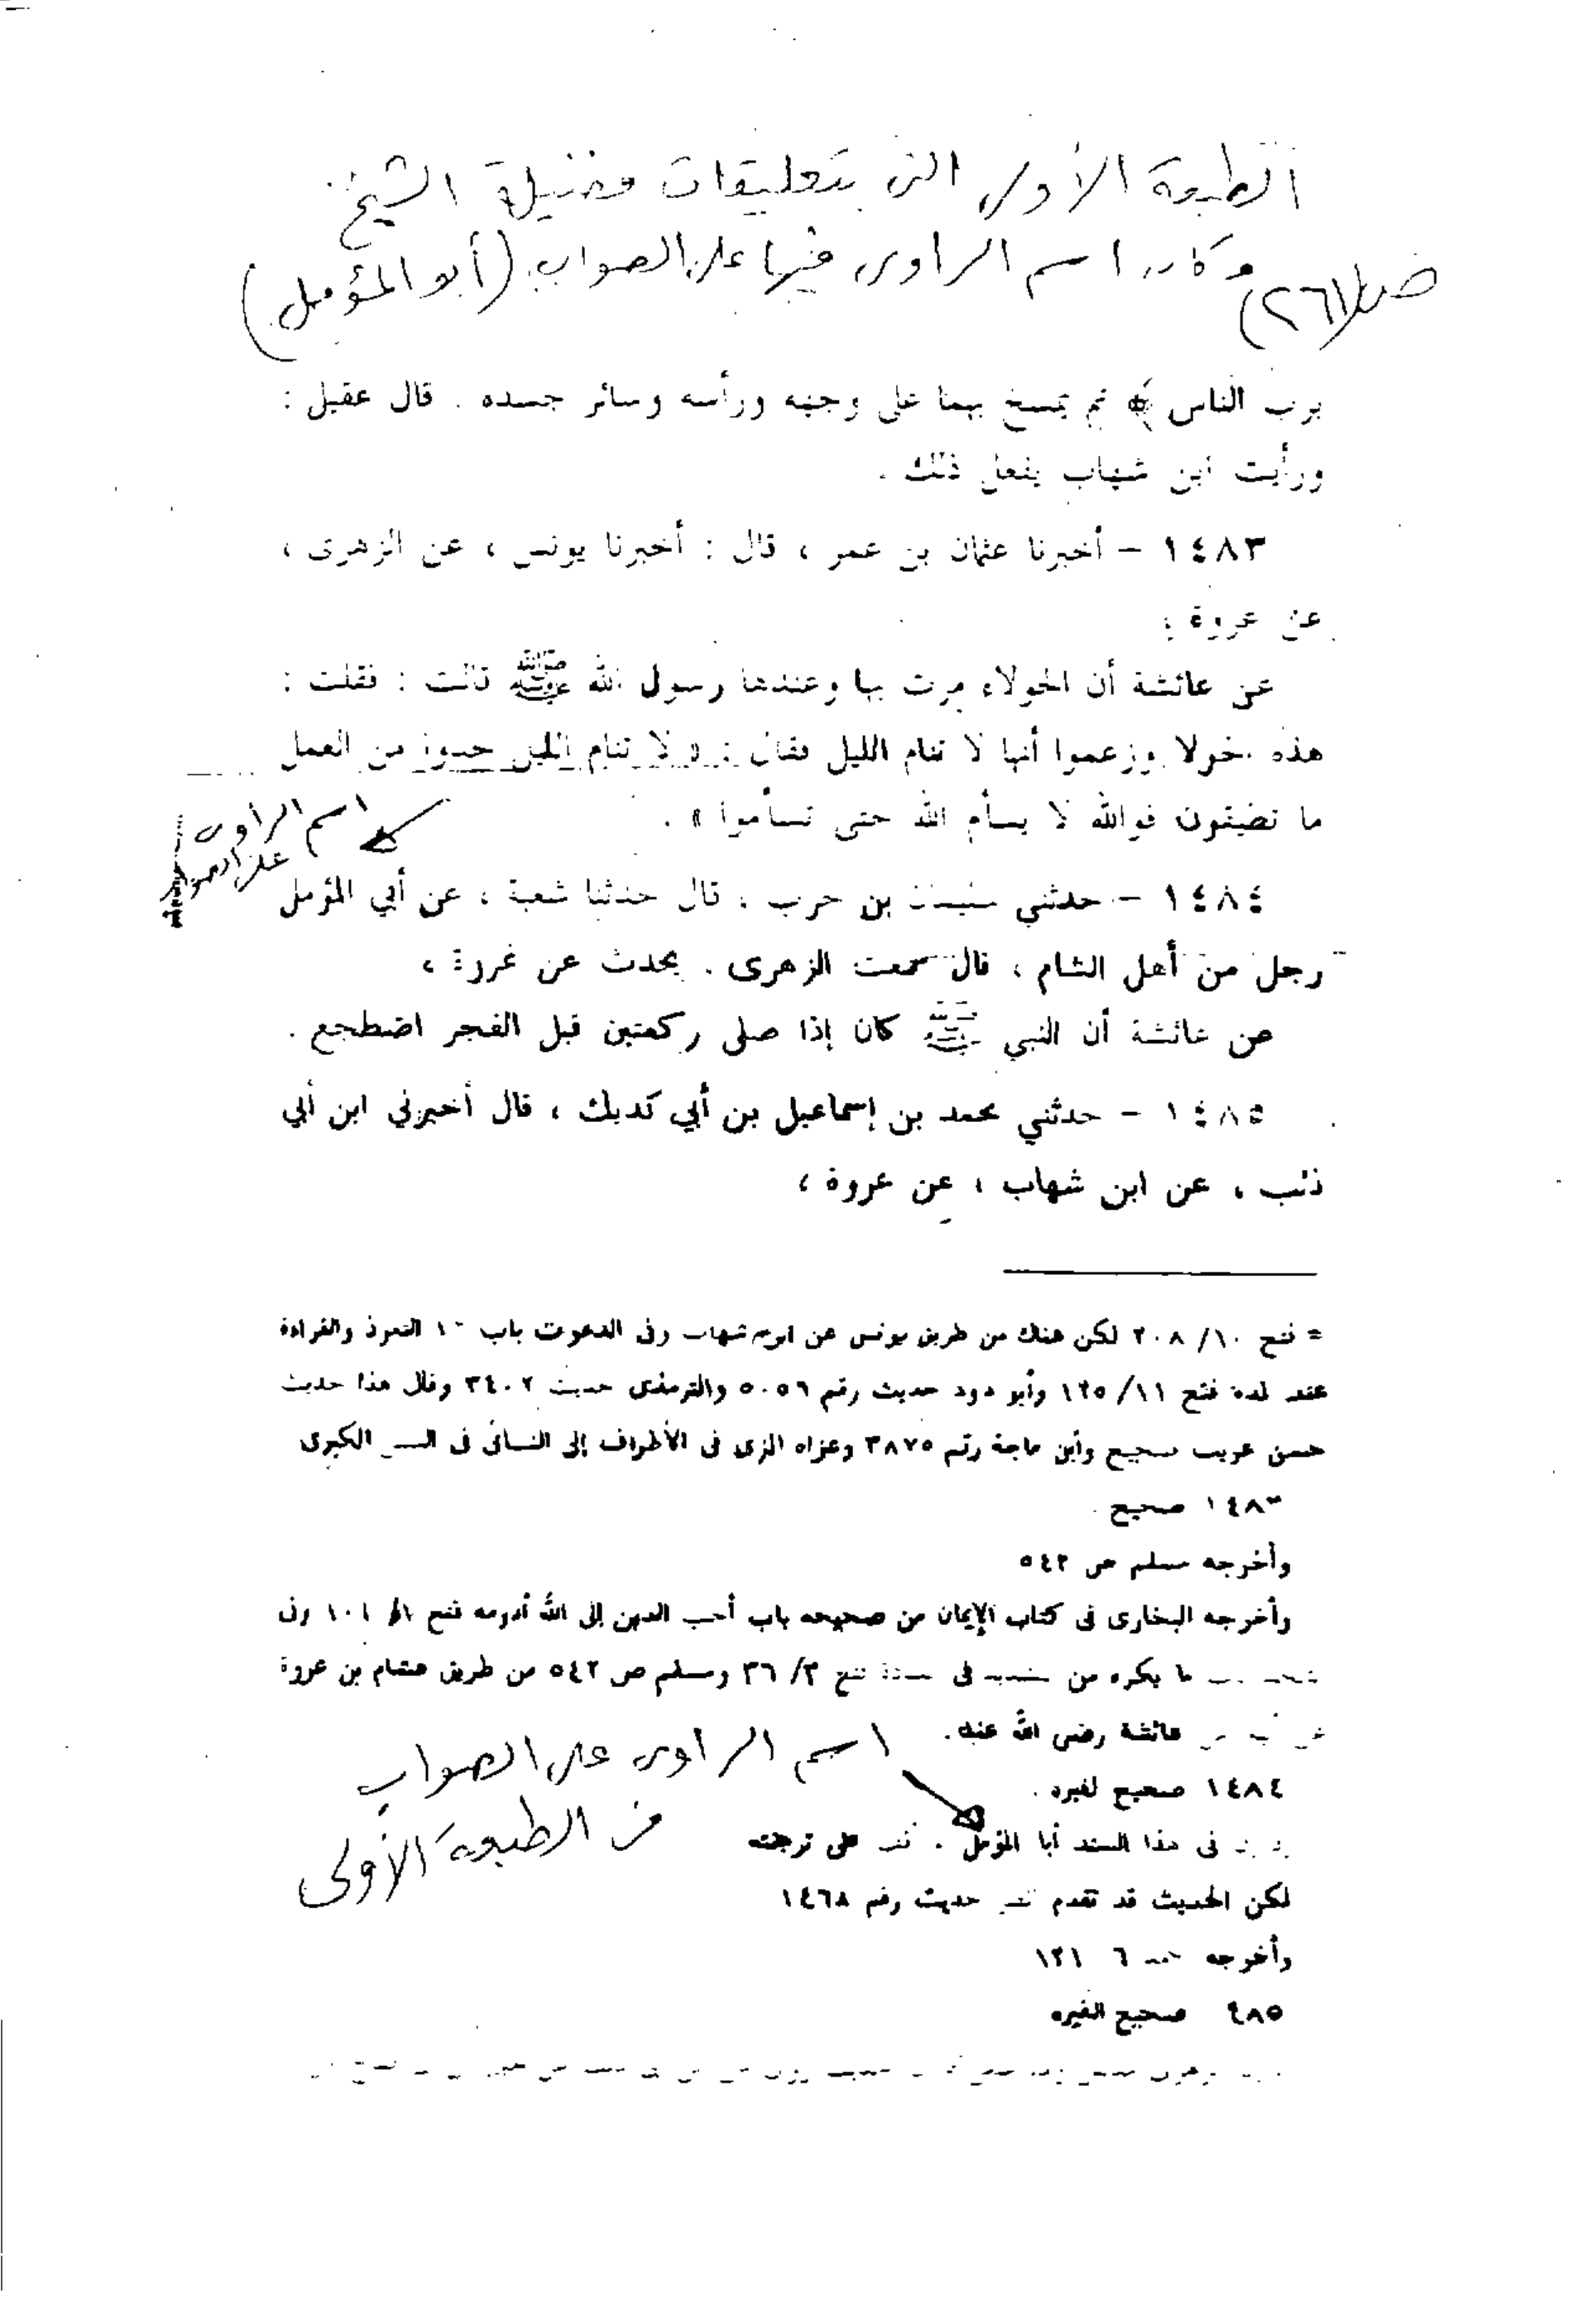 الطبعة الأولى التى بتعليقات فضيلة الشيخ
وكان اسم الراوى فيها على الصواب (أبو المؤمل)
(٢٦١)
برب الناس ﴾ ثم يمسح بهما على وجهه ورأسه وسائر جسده . قال عقيل :
ورأيت ابن شهاب يفعل ذلك .
١٤٨٣ – أخبرنا عثمان بن عمر ، قال : أخبرنا يونس ، عن الزهرى ،
عن عروة ؛
عن عائشة أن الحولاء مرت بها وعندها رسول الله ﷺ قالت : فقلت :
هذه وزعموا أنها لا تنام الليل فقال : « لا تنام الليل خذوا من العمل
ما تطيقون فوالله لا يسأم الله حتى تسأموا » .
اسم الراوى
على الصواب
١٤٨٤ – حدثني سليمان بن حرب ، قال حدثنا شعبة ، عن أبي المؤمل
رجل من أهل الشام ، قال سمعت الزهرى . يحدث عن عروة ،
عن عائشة أن النبي ﷺ كان إذا صلى ركعتين قبل الفجر اضطجع .
١٤٨٥ – حدثني محمد بن إسماعيل بن أبي كديك ، قال أخبرني ابن أبي
ذئب ، عن ابن شهاب ، عن عروة ،
= فتح ١٠/ ٢٠٨ لكن هناك من طريق يونس عن ابن شهاب وفى الدعوت باب التعوذ والقراءة
عند فتح ١١/ ١٢٥ وأبو دود حديث رقم ٥٠٥٦ والترمذى حديث ٣٤٠٢ وقال هذا حديث
حسن غريب صحيح وأبن ماجة رقم ٣٨٧٥ وعزاه المزى فى الأطراف إلى النسائى فى الكبرى
١٤٨٣ صحيح .
وأخرجه مسلم ص ٥٤٢
وأخرجه البخارى فى كتاب الإيمان من صحيحه باب أحب الدين إلى الله أدومه فتح ١/ ١٠١ وفى
ما يكره من فى فتح ٣/ ٣٦ ومسلم ص ٥٤٢ من طريق هشام بن عروة
عائشة رضى الله عنها .
اسم الراوى على الصواب
١٤٨٤ صحيح لغيره .
من الطبعة الأولى
فى هذا السند أبا المؤمل . على ترجمته
لكن الحديث قد تقدم حديث رقم ١٤٦٨
وأخرجه ٦ ١٢١
٤٨٥ صحيح لغيره